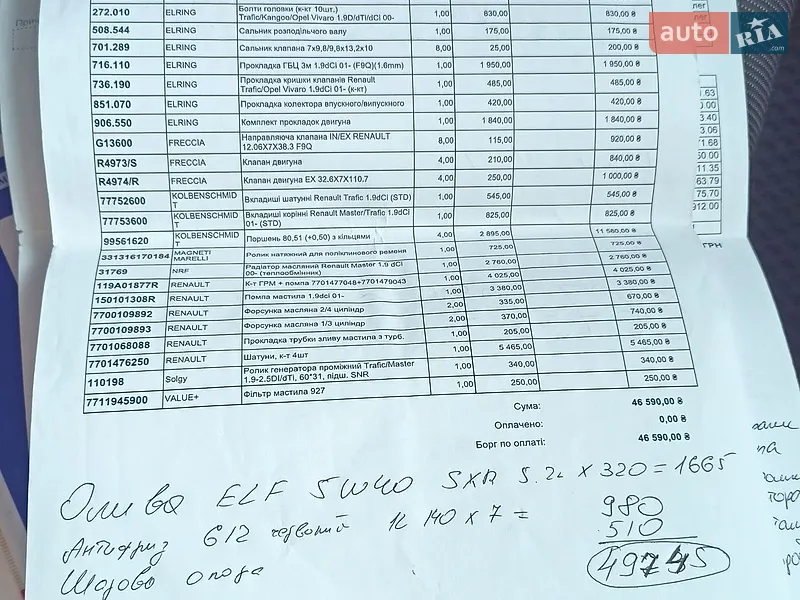 auto RIA .com
272.010 ELRING Болти головки (к-кт 10шт.) Trafic/Kangoo/Opel Vivaro 1.9D/dTi/dCi 00- 1,00 830,00 830,00 ₴
508.544 ELRING Сальник розподільчого валу 1,00 175,00 175,00 ₴
701.289 ELRING Сальник клапана 7x9,8/9,8x13,2x10 8,00 25,00 200,00 ₴
716.110 ELRING Прокладка ГБЦ 3м 1.9dCi 01- (F9Q)(1.6mm) 1,00 1 950,00 1 950,00 ₴
736.190 ELRING Прокладка кришки клапанів Renault Trafic/Opel Vivaro 1.9dCi 01- (к-кт) 1,00 485,00 485,00 ₴
851.070 ELRING Прокладка колектора впускного/випускного 1,00 420,00 420,00 ₴
906.550 ELRING Комплект прокладок двигуна 1,00 1 840,00 1 840,00 ₴
G13600 FRECCIA Направляюча клапана IN/EX RENAULT 12.06X7X38.3 F9Q 8,00 115,00 920,00 ₴
R4973/S FRECCIA Клапан двигуна 4,00 210,00 840,00 ₴
R4974/R FRECCIA Клапан двигуна EX 32.6X7X110.7 4,00 250,00 1 000,00 ₴
77752600 KOLBENSCHMIDT Вкладиші шатунні Renault Trafic 1.9dCi (STD) 1,00 545,00 545,00 ₴
77753600 KOLBENSCHMIDT Вкладиші корінні Renault Master/Trafic 1.9dCi 01- (STD) 1,00 825,00 825,00 ₴
99561620 KOLBENSCHMIDT Поршень 80,51 (+0,50) з кільцями 4,00 2 895,00 11 580,00 ₴
331316170184 MAGNETI MARELLI Ролик натяжний для поліклинового ременя 1,00 725,00 725,00 ₴
31769 NRF Радіатор масляний Renault Master 1.9 dCi 00- (теплообмінник) 1,00 2 760,00 2 760,00 ₴
119A01877R RENAULT К-кт ГРМ + помпа 7701477048+7701479043 1,00 4 025,00 4 025,00 ₴
150101308R RENAULT Помпа мастила 1.9dci 01- 1,00 3 380,00 3 380,00 ₴
7700109892 RENAULT Форсунка масляна 2/4 циліндр 2,00 335,00 670,00 ₴
7700109893 RENAULT Форсунка масляна 1/3 циліндр 2,00 370,00 740,00 ₴
7701068088 RENAULT Прокладка трубки зливу мастила з турб. 1,00 205,00 205,00 ₴
7701476250 RENAULT Шатуни, к-кт 4шт 1,00 5 465,00 5 465,00 ₴
110198 Solgy Ролик генератора проміжний Trafic/Master 1.9-2.5DI/dTi, 60*31, підш. SNR 1,00 340,00 340,00 ₴
7711945900 VALUE+ Фільтр мастила 927 1,00 250,00 250,00 ₴
Сума: 46 590,00 ₴
Оплачено: 0,00 ₴
Борг по оплаті: 46 590,00 ₴
Олива ELF 5W40 SXR 5.2L x 320 = 1665
Антифриз 612 червоний 1L 140 x 7 = 980
510
49745
ГРН